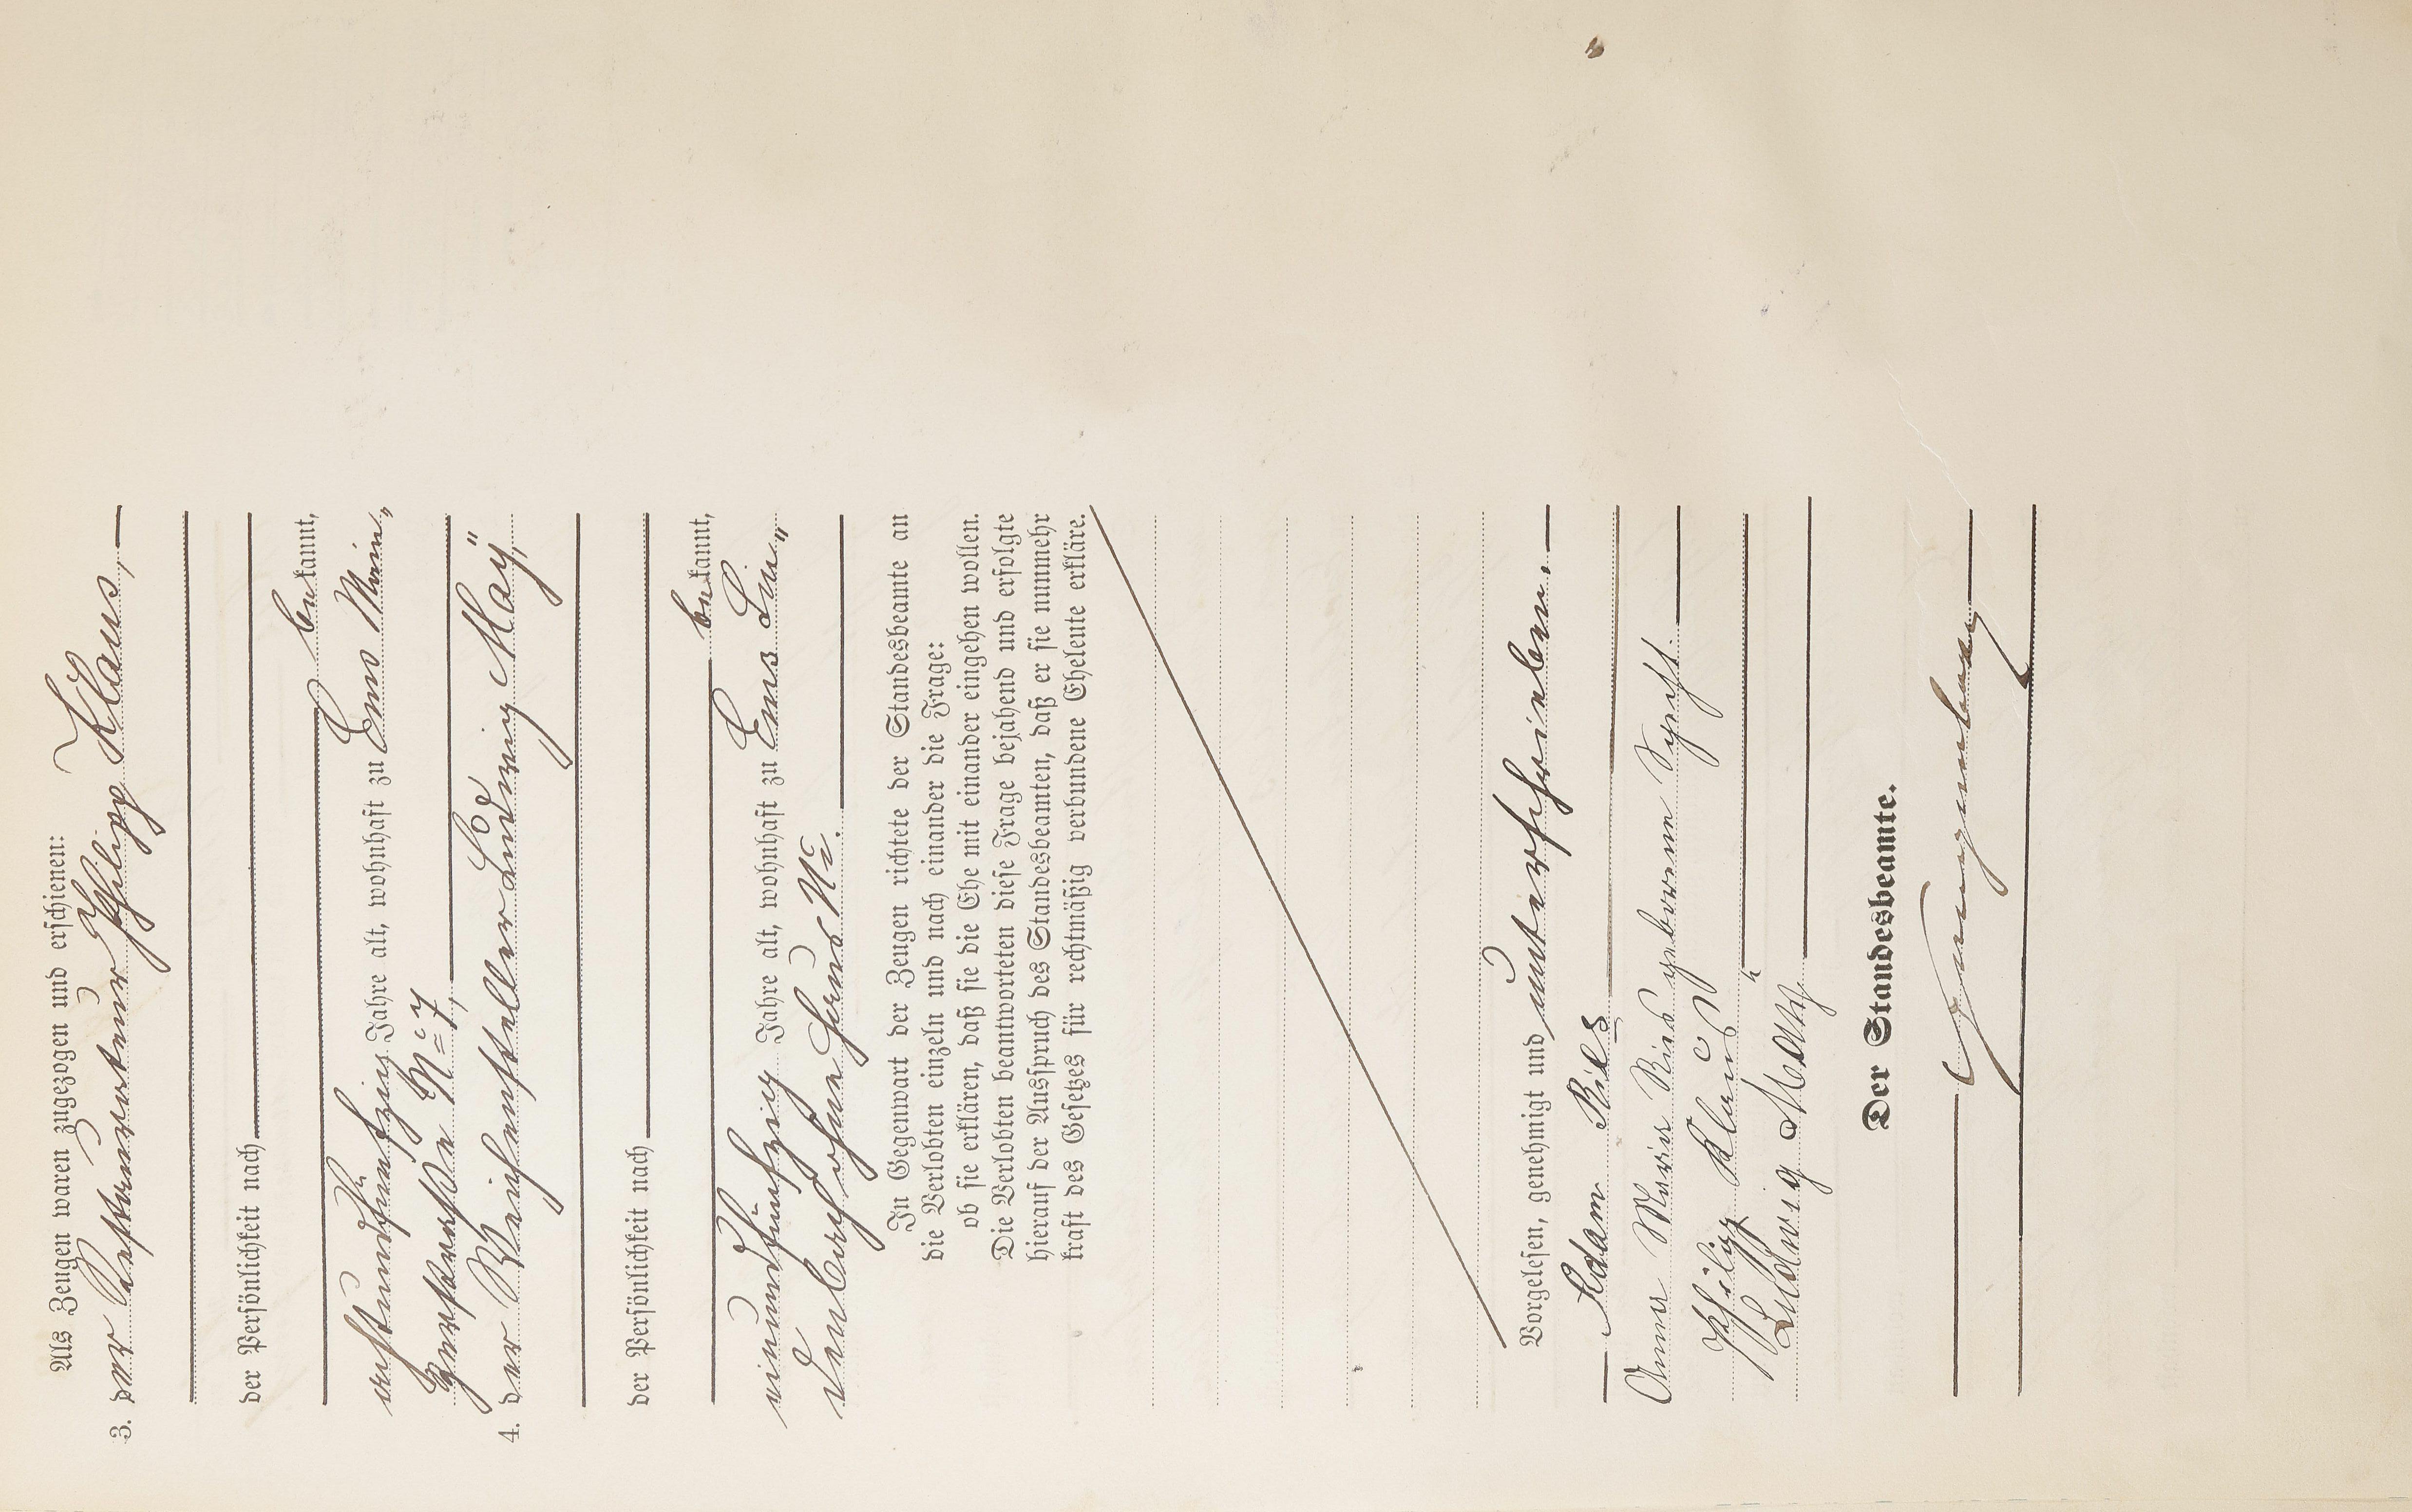 Als Zeugen waren zugezogen und erschienen:
3. der Restaurateur Philipp Klaus,
der Persönlichkeit nach
bekannt,
achtundfünfzig Jahre alt, wohnhaft zu Ems Main„
zerstraße No 7,
4. der Weichensteller Ludwig May,
der Persönlichkeit nach
bekannt,
einundfünfzig Jahre alt, wohnhaft zu Ems Lin„
denbach
In Gegenwart der Zeugen richtete der Standesbeamte an
die Verlobten einzeln und nach einander die Frage:
ob sie erklären, daß sie die Ehe mit einander eingehen wollen.
Die Verlobten beantworteten diese Frage bejahend und erfolgte
hierauf der Ausspruch des Standesbeamten, daß er sie nunmehr
kraft des Gesetzes für rechtmäßig verbundene Eheleute erkläre.
Vorgelesen, genehmigt und unterschrieben.
Adam Ries
Anna Maria Ries geborene Specht.
Philipp Klaus
Ludwig May
Der Standesbeamte.